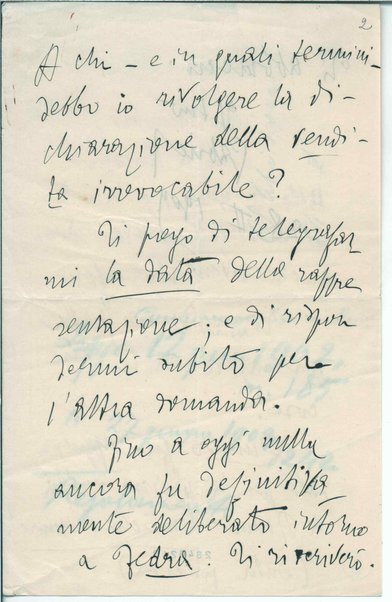 2
A chi – e in quali termini –
debbo io rivolgere la di-
chiarazione della vendi-
ta irrevocabile?
Ti prego di telegrafar
mi la data della rappre
sentazione; e di rispon
dermi subito per
l'altra domanda.
Fino a oggi nulla
ancora fu definitiva
mente deliberato intorno
a Fedra. Ti riscriverò.